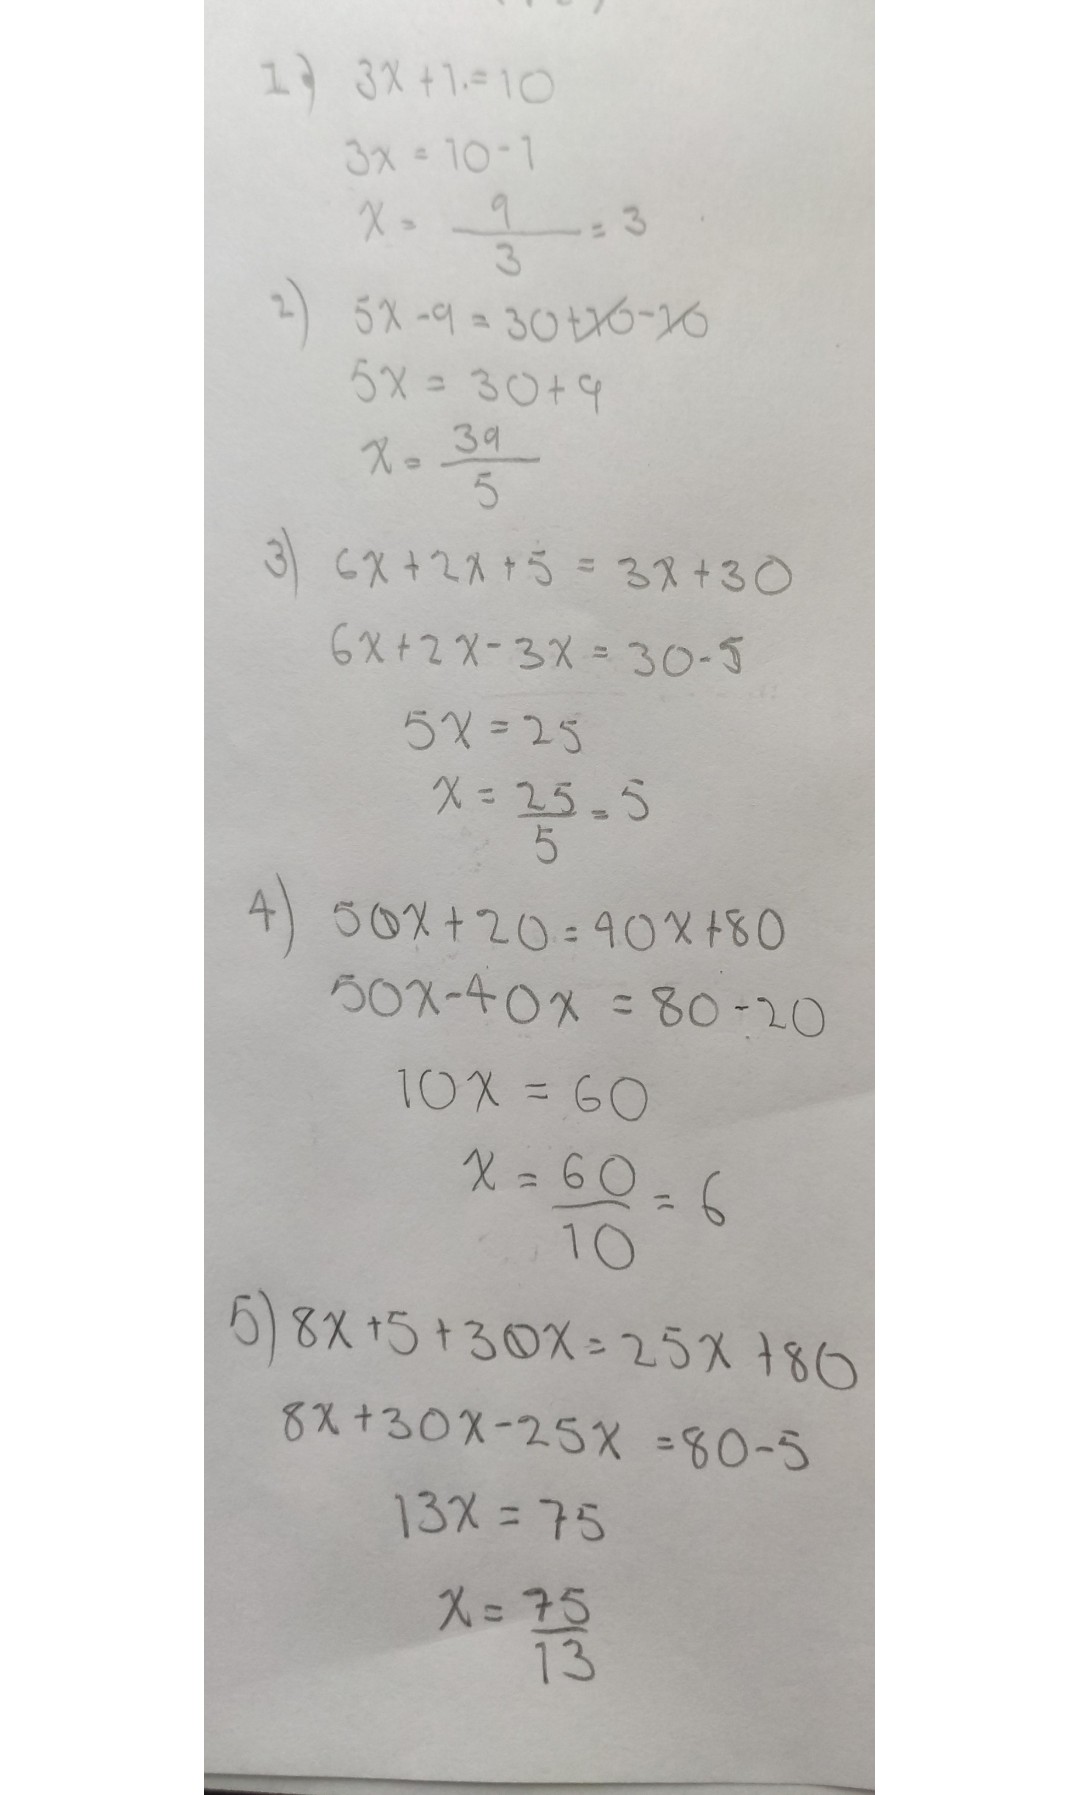 1) 3x+1=10
3x=10-1
x=9/3=3
2) 5x-9=30+10-10
5x=30+9
x=39/5
3) 6x+2x+5=3x+30
6x+2x-3x=30-5
5x=25
x=25/5=5
4) 50x+20=40x+80
50x-40x=80-20
10x=60
x=60/10=6
5) 8x+5+30x=25x+80
8x+30x-25x=80-5
13x=75
x=75/13